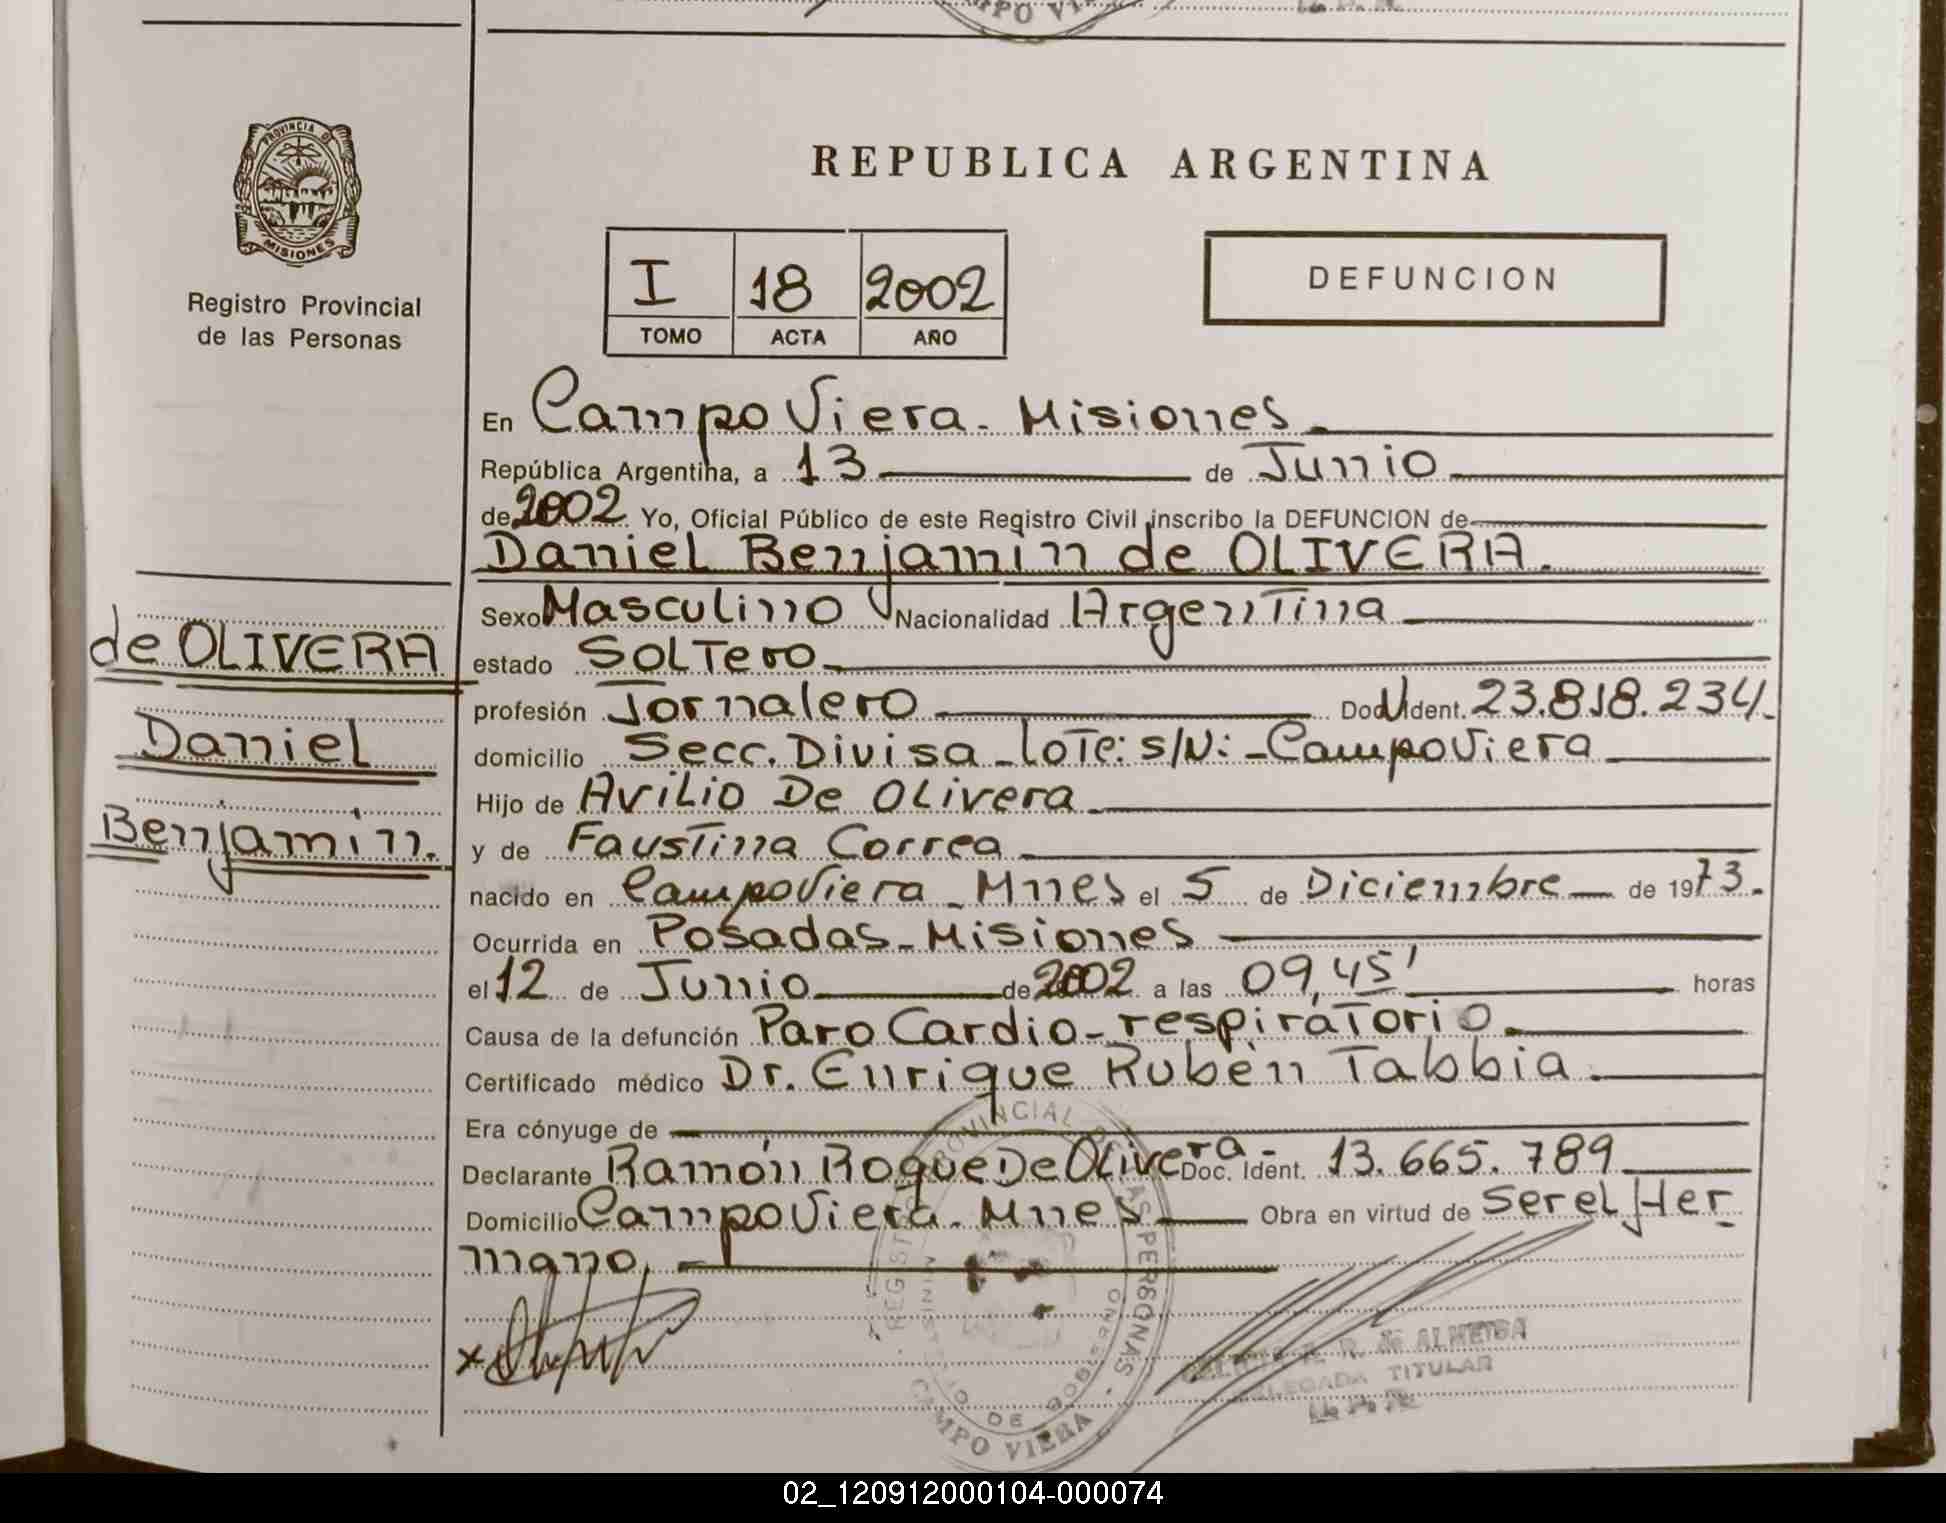 PROVINCIA DE
MISIONES
Registro Provincial
de las Personas
de OLIVERA
Daniel
Benjamín.
CAMPO VIERA
REPUBLICA ARGENTINA
I 18 2002
TOMO ACTA AÑO
DEFUNCION
En Campo Viera - Misiones.
República Argentina, a 13 de Junio
de 2002 Yo, Oficial Público de este Registro Civil inscribo la DEFUNCION de
Daniel Benjamín de OLIVERA.
Sexo Masculino Nacionalidad Argentina
estado Soltero
profesión Jornalero Doc. Ident. 23.818.234.
domicilio Secc. Divisa - lote: s/N: - Campo Viera
Hijo de Avilio De Olivera
y de Faustina Correa
nacido en Campo Viera - Mnes el 5 de Diciembre de 1973.
Ocurrida en Posadas - Misiones
el 12 de Junio de 2002 a las 09,45' horas
Causa de la defunción Paro Cardio-respiratorio.
Certificado médico Dr. Enrique Rubén Tabbia.
Era cónyuge de
Declarante Ramón Roque De Olivera - Doc. Ident. 13.665.789
Domicilio Campo Viera - Mnes Obra en virtud de Ser el Her
mano.
REGISTRO PROVINCIAL DE LAS PERSONAS
MINISTERIO DE GOBIERNO
CAMPO VIERA
R. de ALMEIDA
DELEGADA TITULAR
02_120912000104-000074